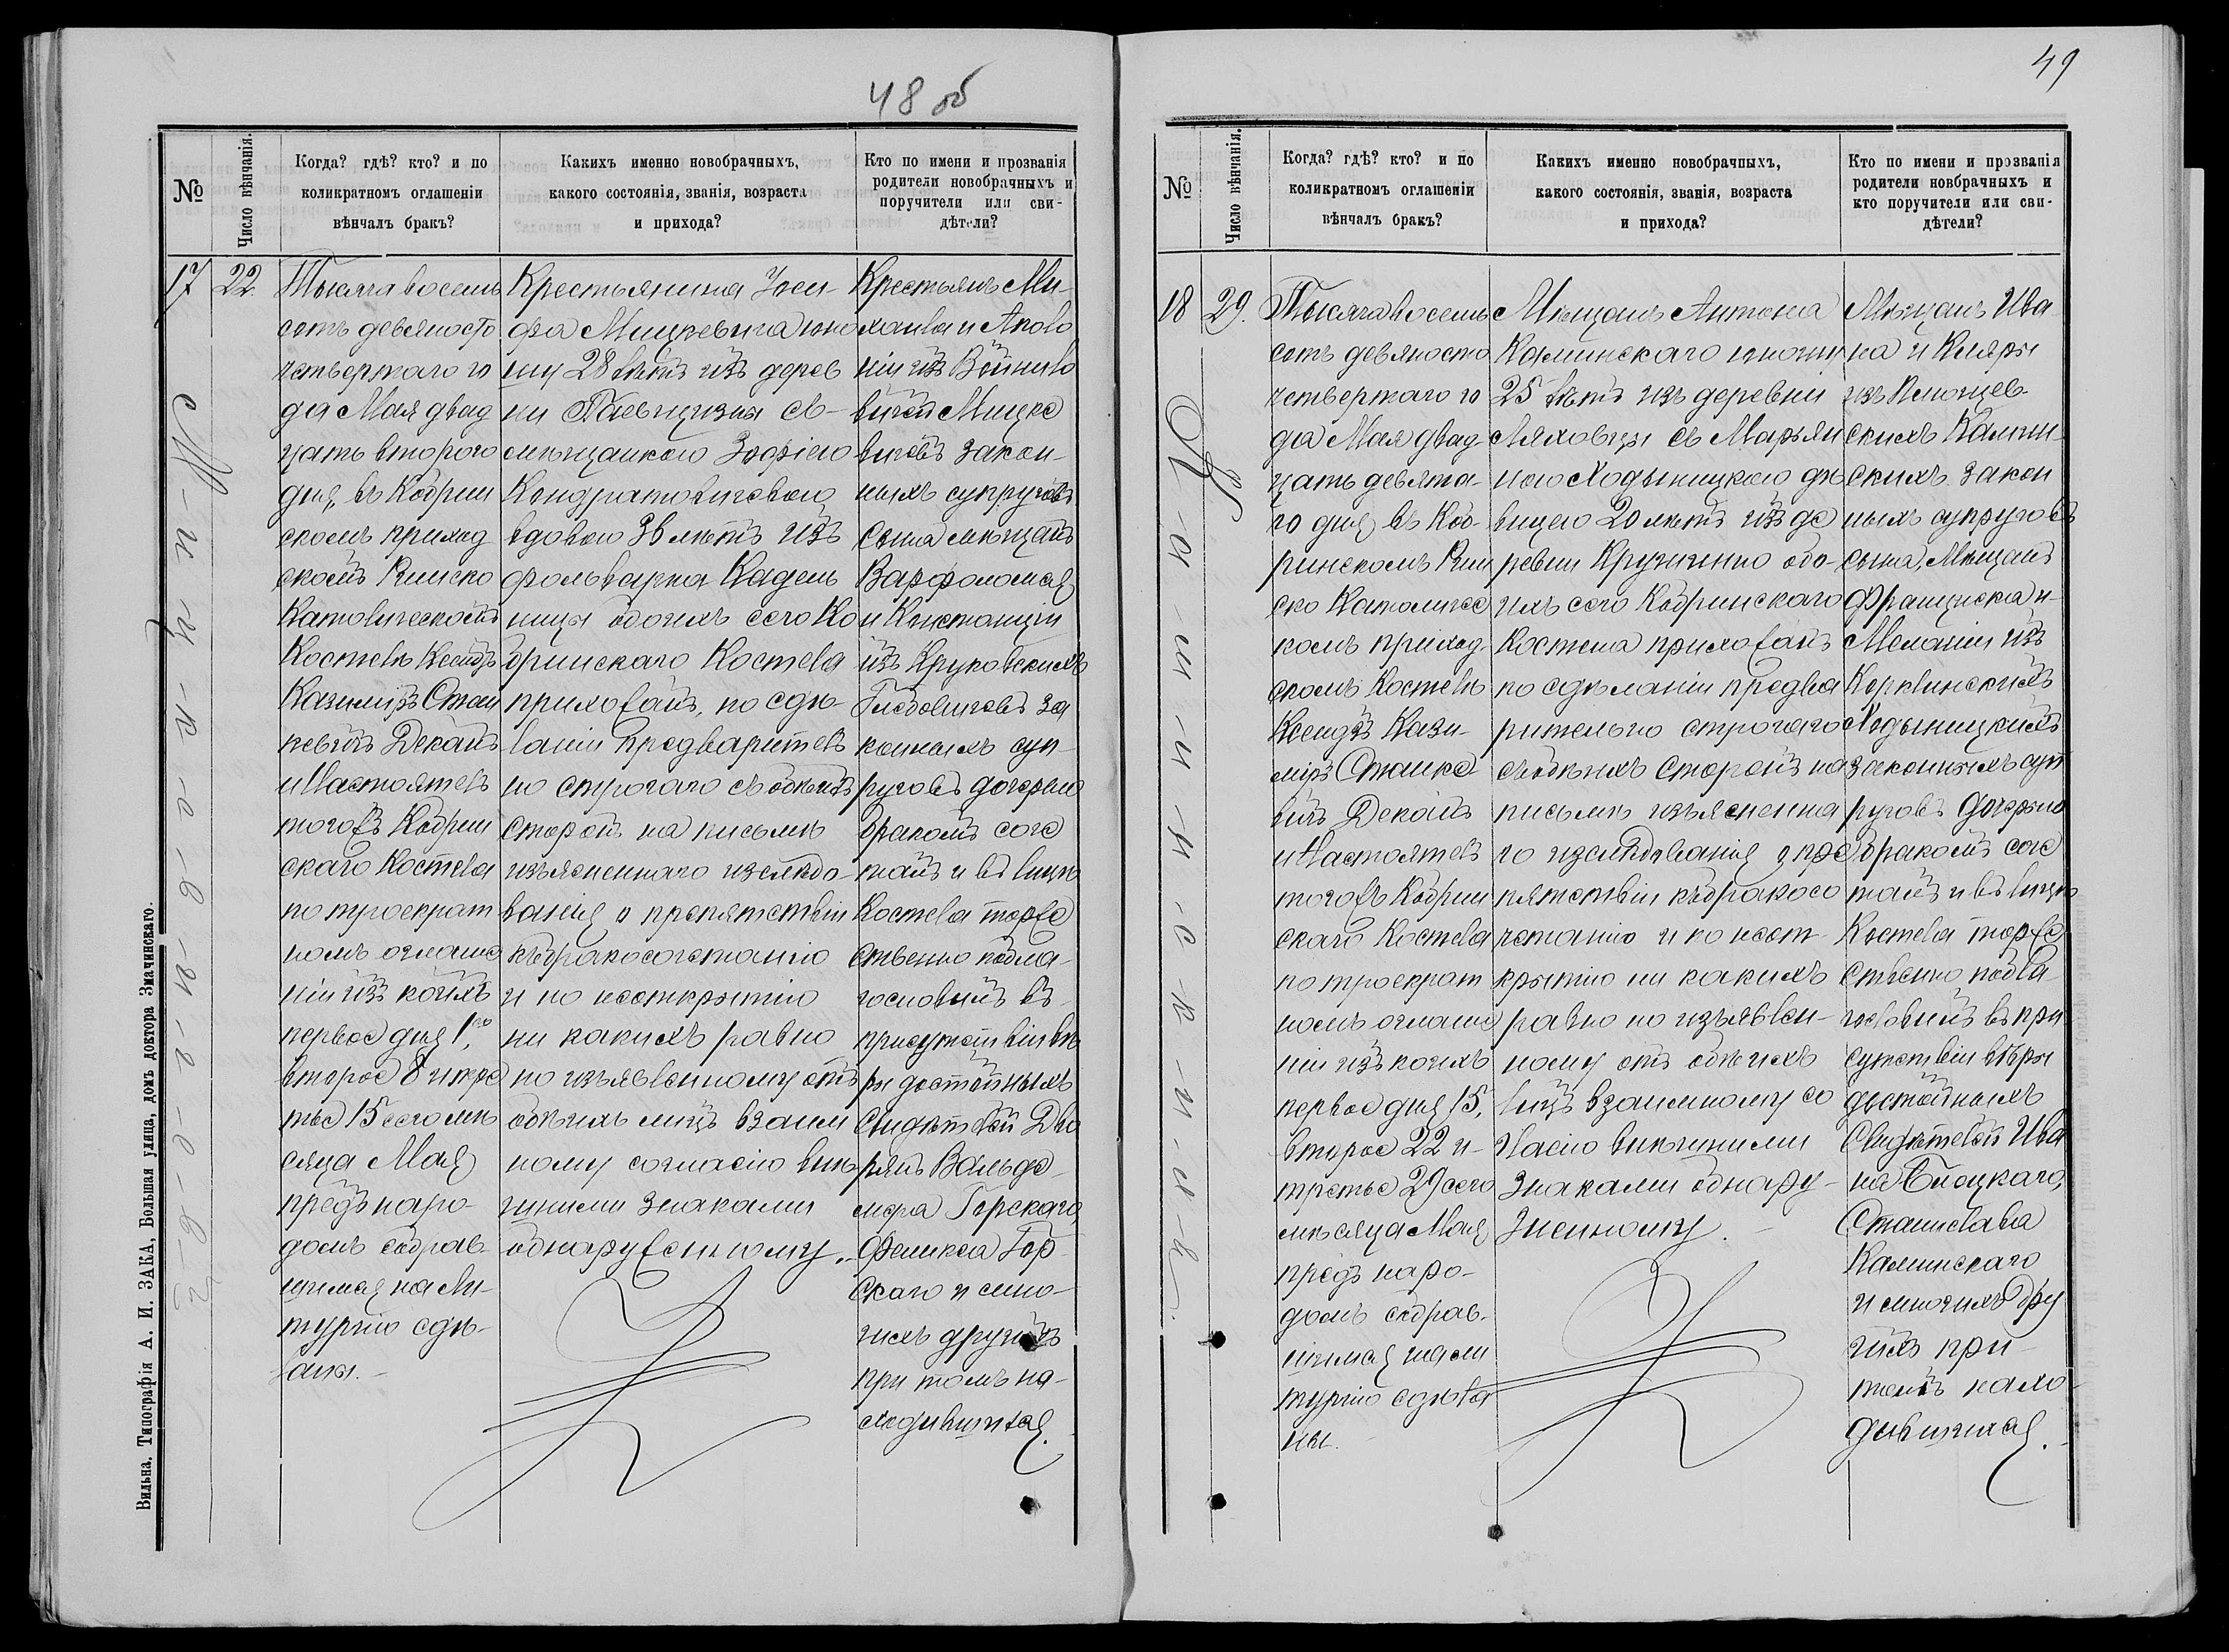 48 об
№
Число вѣнчанія.
Когда? гдѣ? кто? и по
коликратномъ оглашеніи
вѣнчалъ бракъ?
Какихъ именно новобрачныхъ,
какого состоянія, званія, возраста
и прихода?
Кто по имени и прозванія
родители новобрачныхъ и
поручители или сви-
дѣтели?
17
22.
Тысяча восемь
сотъ девяносто
четвертаго го
да Мая двад
цать второго
дня, въ Кобрин
скомъ приход
скомъ Римско
Католическомъ
Костелѣ Ксендзъ
Казиміръ Стан
кевичъ Деканъ
и Настоятель
тогожъ Кобрин
скаго Костела
по троекрат
номъ оглаше
ніи изъ коихъ
первое дня 1го,
второе 8 и тре
тье 15 сего мѣ
сяца Мая
предъ наро-
домъ собрав-
шимся на Ли-
тургію сдѣ-
ланы.-
Крестьянина Іоси-
фа Мицкевича юно
шу 28 лѣтъ изъ дерев
ни съ-
мѣщанкою Зофіею
Кондратовичевою
вдовою 36 лѣтъ изъ
фольварка Кадель
ницы обоихъ сего Ко
бринскаго Костела
прихожанъ, по сдѣ-
ланіи предваритель
но строгаго съ обѣихъ
сторонъ на письмѣ
изъясненнаго изслѣдо-
ванія о препятствіи
къ бракосочетанію
и по неоткрытію
ни какихъ равно
по изъявленному отъ
обѣихъ лицъ взаим
ному согласію внѣ
шними знаками
обнаруженному.-
Крестьянъ Ми-
хаила и Аполо
ніи изъ Войнило
вичей Мицке
вичевъ закон-
ныхъ супруговъ
сына мѣщанъ
Варфоломея
и Констанціи
изъ Круковскихъ
Глебовичевъ за
конныхъ суп-
руговъ дочерью
бракомъ соче
талъ и въ лицѣ
Костела торже
ственно побла-
гословилъ въ
присутствіи вѣ
ры достойныхъ
Свидѣтелей Дво
рянъ Вальде-
мара Горскаго,
Феликса Гор
скаго и мно-
гихъ другихъ
при томъ на-
ходившихся.
М-и-ц-к-е-в-и-ч-е-в-ъ
Вильна. Типографія А. И. ЗАКА, Большая улица, домъ доктора Змачинскаго.
49
№
Число вѣнчанія.
Когда? гдѣ? кто? и по
коликратномъ оглашеніи
вѣнчалъ бракъ?
Какихъ именно новобрачныхъ,
какого состоянія, званія, возраста
и прихода?
Кто по имени и прозванія
родители новбрачныхъ и
кто поручители или сви-
дѣтели?
18
29.
Тысяча восемь
сотъ девяносто
четвертаго го
да Мая двад-
цать девята-
го дня, въ Коб-
ринскомъ Рим
ско Католичес
комъ приход-
скомъ Костелѣ
Ксендзъ Кази-
міръ Станке
вичъ Деканъ
и Настоятель
тогожъ Кобрин
скаго Костела
по троекрат
номъ оглаше
ніи изъ коихъ
первое дня 15,
второе 22 и-
третье 29 сего
мѣсяца Мая
предъ наро-
домъ собрав-
шимся на ли
тургію сдѣла
ны.
Мѣщанъ Антона
Калинскаго юношу
25 лѣтъ изъ деревни
Ляховцы съ Марьян
ною Ходыницкою дѣ
вицею 20 лѣтъ изъ де
ревни обо-
ихъ сего Кобринскаго
Костела прихожанъ
по сдѣланіи предва
рительно строгаго
съ обѣихъ сторонъ на
письмѣ изъясненна
го изслѣдованія о пре
пятствіи къ бракосо
четанію и по неот-
крытію ни какихъ
равно по изъявлен-
ному отъ обѣихъ
лицъ взаимному со
гласію внѣшними
знаками обнару-
женному.-
Мѣщанъ Ива
на и Кляры
изъ
скихъ Калин-
скихъ закон
ныхъ супруговъ
сына, Мѣщанъ
Францишка и-
Меланіи изъ
Ходыницкихъ
законныхъ суп
руговъ дочерью
бракомъ соче
талъ и въ лицѣ
Костела торже
ственно побла-
гословилъ въ при
сутствіи вѣры
достойныхъ
Свидѣтелей Ива
на
Станислава
Калинскаго
и многихъ дру
гихъ при
томъ нахо-
дившихся.
К-а-л-и-н-с-к-и-й